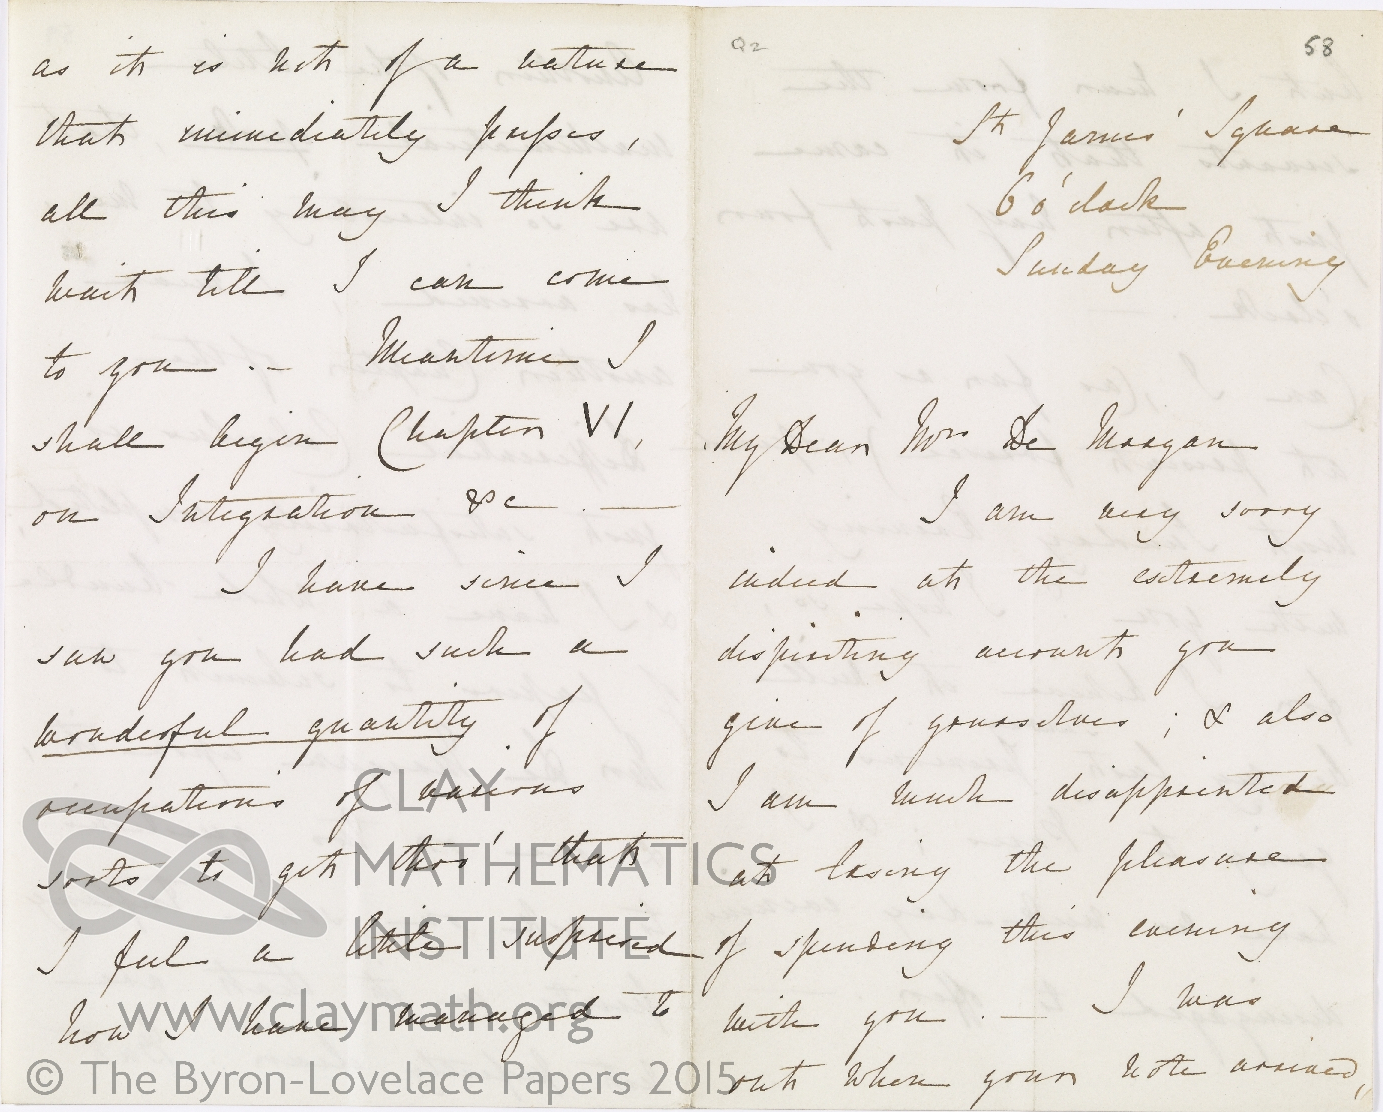 as it is not of a nature
that immediately presses,
all this may I think
wait till I can come
to you. — Meantime I
shall begin Chapter VI,
on Integration &c. —
I have since I
saw you had such a
wonderful quantity of
occupations of various
sorts to get thro', that
I feel a little surprised
how I have managed to
Q2
58
St James' Square
6 o'clock
Sunday Evening
My Dear Mrs De Morgan
I am very sorry
indeed at the extremely
dispiriting account you
give of yourselves; & also
I am much disappointed
at losing the pleasure
of spending this evening
with you. — I was
out when your note arrived,
CLAY
MATHEMATICS
INSTITUTE
www.claymath.org
© The Byron-Lovelace Papers 2015